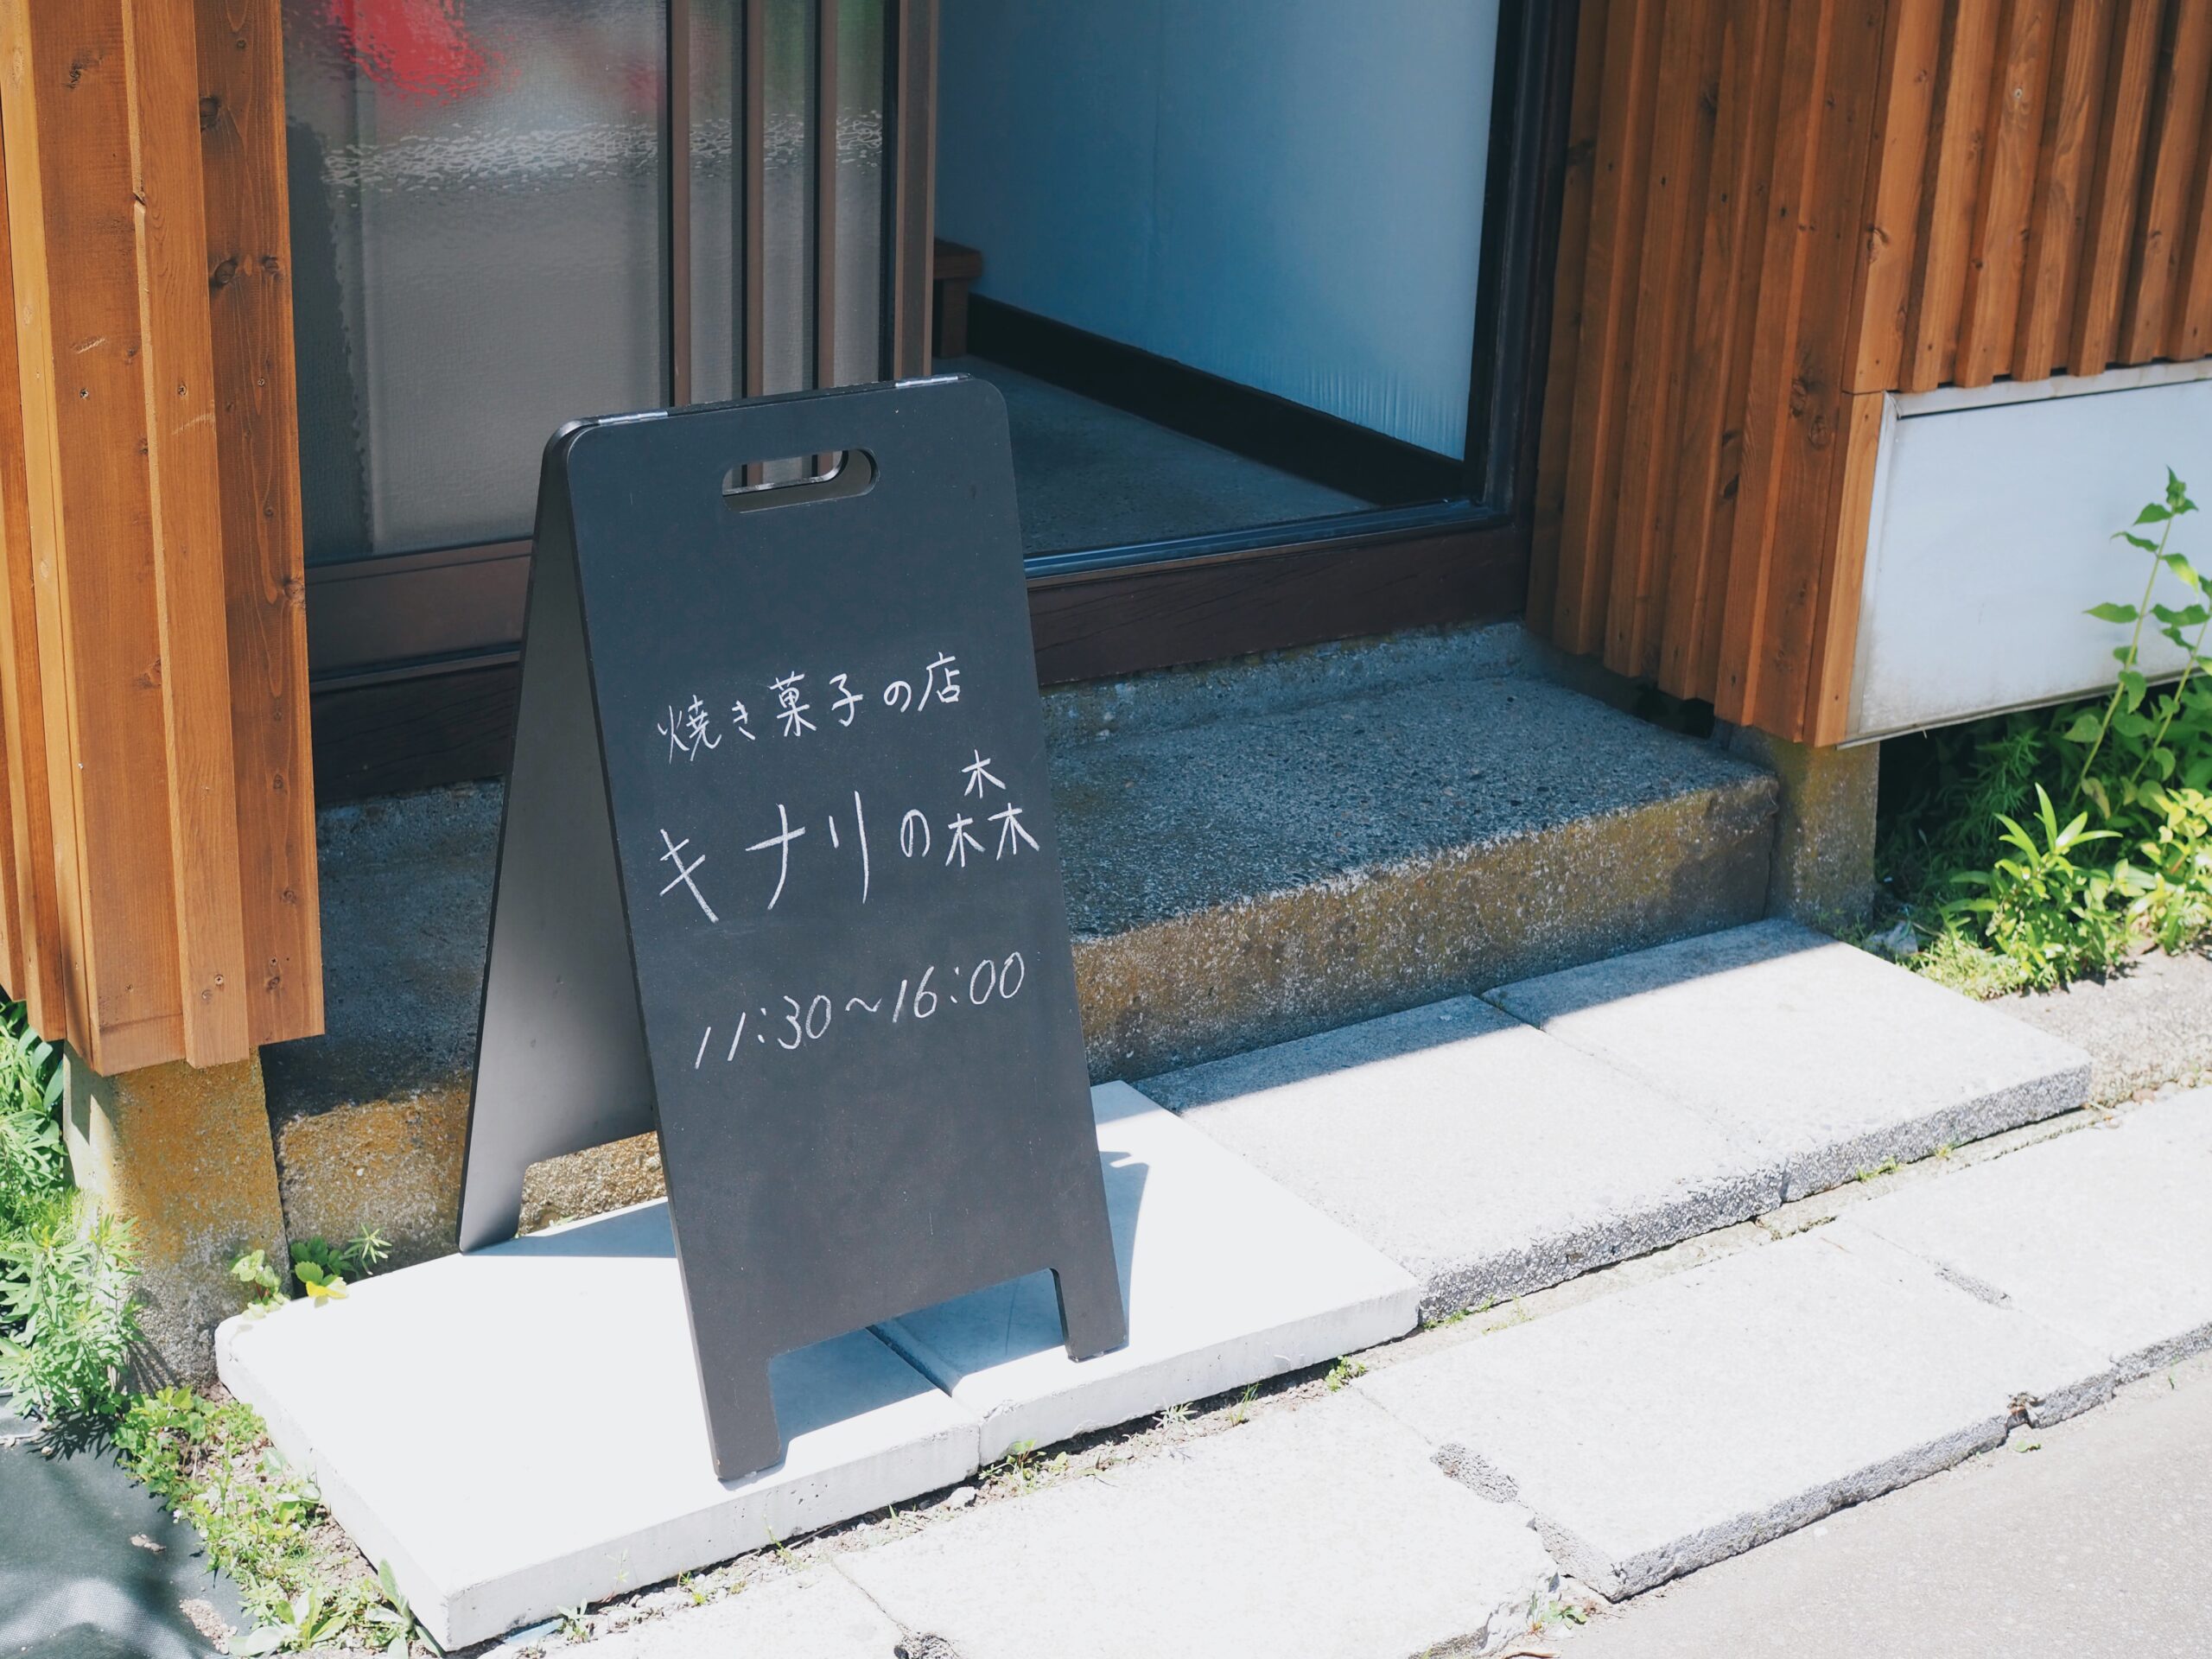 焼き菓子の店
キナリの森
11:30~16:00